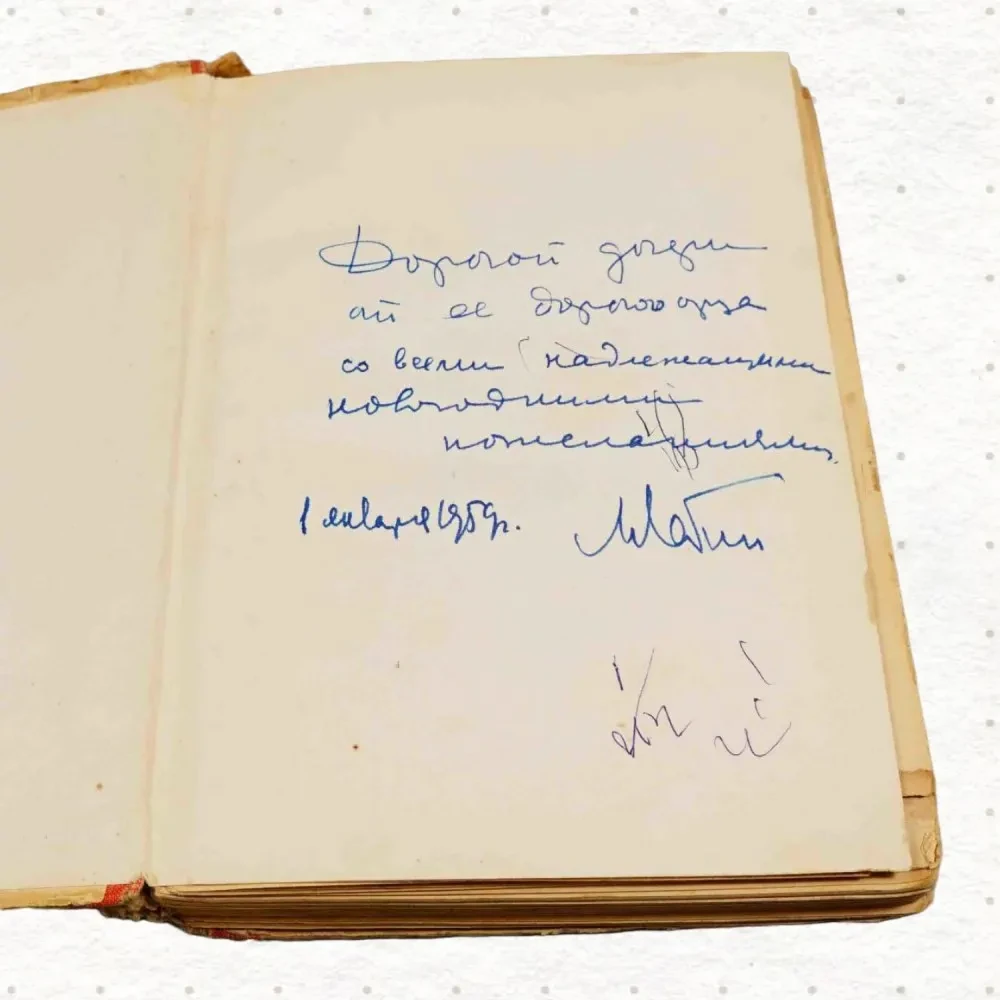 Дорогой дочери
от ее дорогого отца
со всеми надлежащими
новогодними
пожеланиями.
1 января 1959г.